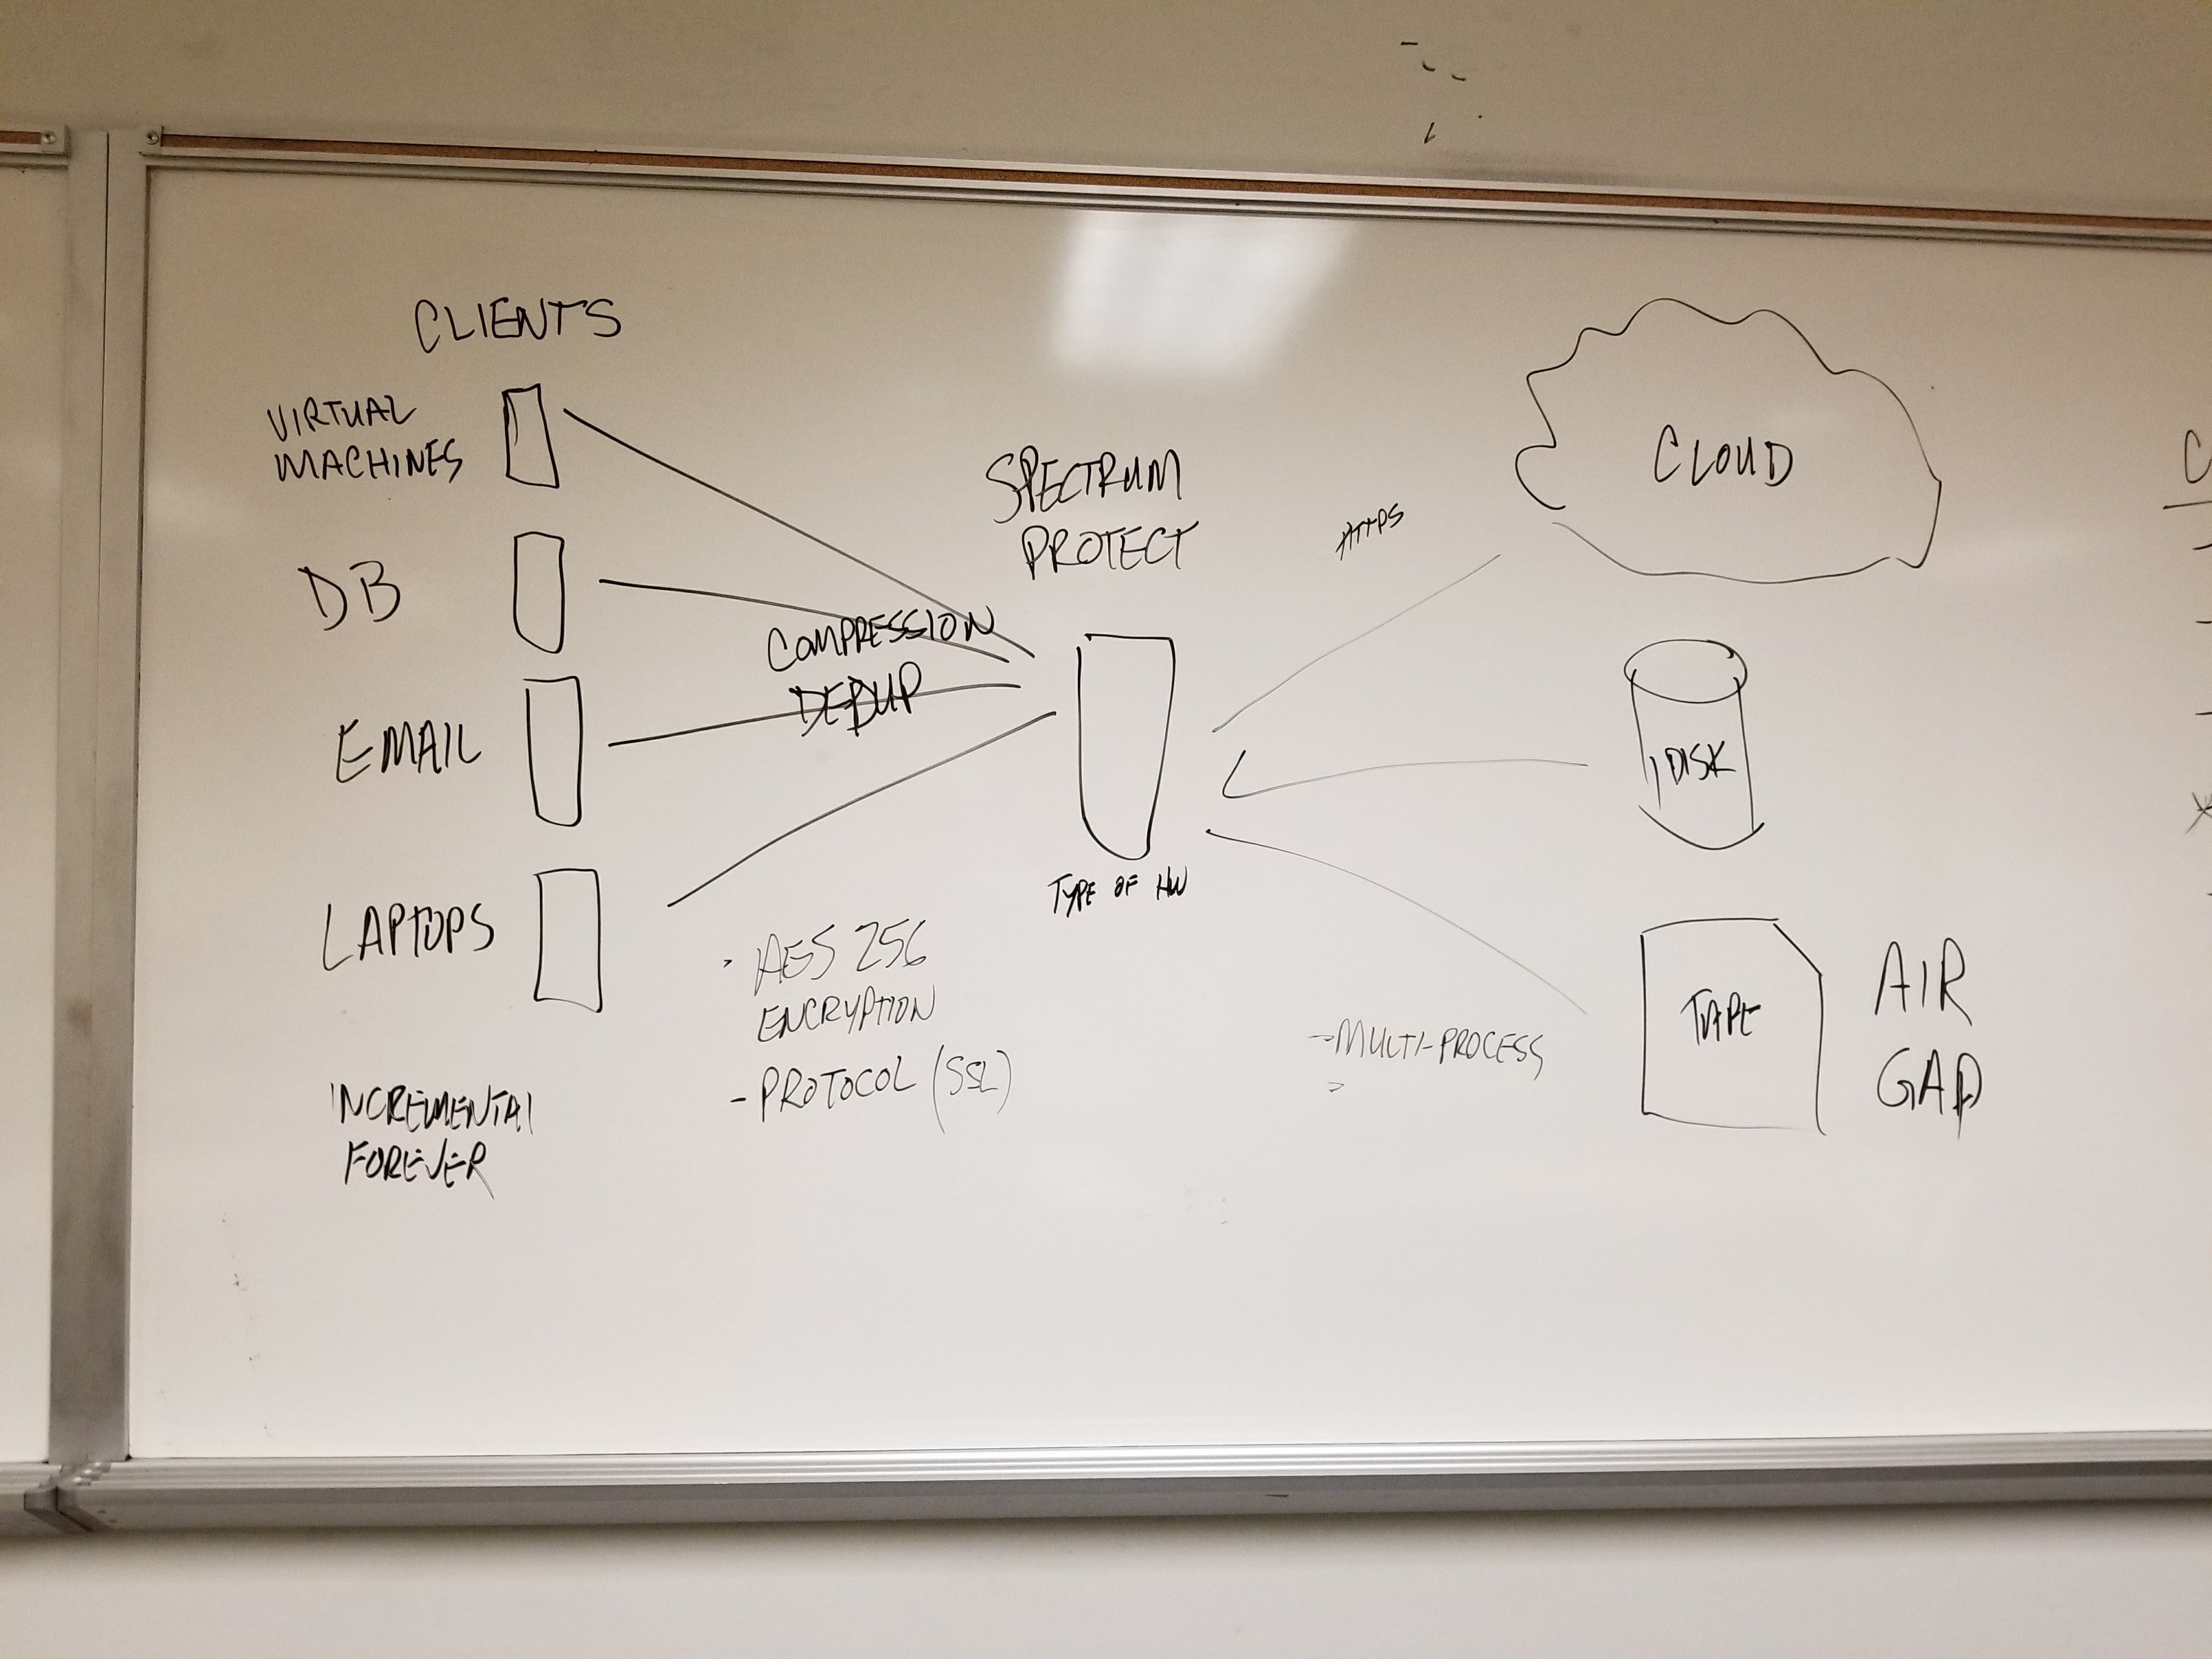 CLIENTS
VIRTUAL
MACHINES
DB
EMAIL
LAPTOPS
INCREMENTAL
FOREVER
COMPRESSION
DEDUP
- AES 256
ENCRYPTION
- PROTOCOL (SSL)
SPECTRUM
PROTECT
TYPE OF HW
HTTPS
- MULTI-PROCESS
CLOUD
DISK
TAPE
AIR
GAP